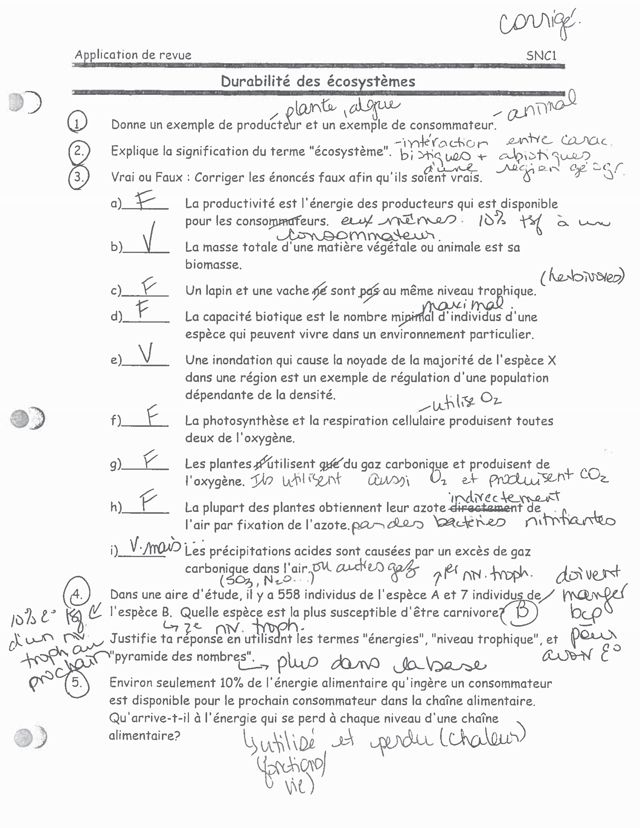 corrigé.
Application de revue SNC1
Durabilité des écosystèmes
- plante, algue - animal
1. Donne un exemple de producteur et un exemple de consommateur.
- intéraction entre carac.
2. Explique la signification du terme "écosystème". biotiques + abiotiques
d'une région géogr.
3. Vrai ou Faux : Corriger les énoncés faux afin qu'ils soient vrais.
a) F La productivité est l'énergie des producteurs qui est disponible
pour les consommateurs. eux mêmes. 10% tsf à un
consommateur.
b) V La masse totale d'une matière végétale ou animale est sa
biomasse.
(herbivores)
c) F Un lapin et une vache ne sont pas au même niveau trophique.
maximal.
d) F La capacité biotique est le nombre minimal d'individus d'une
espèce qui peuvent vivre dans un environnement particulier.
e) V Une inondation qui cause la noyade de la majorité de l'espèce X
dans une région est un exemple de régulation d'une population
dépendante de la densité.
- utilise O2
f) F La photosynthèse et la respiration cellulaire produisent toutes
deux de l'oxygène.
g) F Les plantes n'utilisent que du gaz carbonique et produisent de
l'oxygène. Ils utilisent aussi O2 et produisent CO2
indirectement
h) F La plupart des plantes obtiennent leur azote directement de
l'air par fixation de l'azote. par des bactéries nitrifiantes
i) V. mais... Les précipitations acides sont causées par un excès de gaz
carbonique dans l'air. ou autres gaz
(SO3, N2O...) 1er niv. troph. doivent
4. Dans une aire d'étude, il y a 558 individus de l'espèce A et 7 individus de manger
l'espèce B. Quelle espèce est la plus susceptible d'être carnivore? B bcp
10% é tsf
d'un niv.
troph au
prochain
2e niv. troph. pour
Justifie ta réponse en utilisant les termes "énergies", "niveau trophique", et avoir E
"pyramide des nombres". plus dans la base
5. Environ seulement 10% de l'énergie alimentaire qu'ingère un consommateur
est disponible pour le prochain consommateur dans la chaîne alimentaire.
Qu'arrive-t-il à l'énergie qui se perd à chaque niveau d'une chaîne
alimentaire?
utilisé et perdu (chaleur)
(fonctions/
vie)